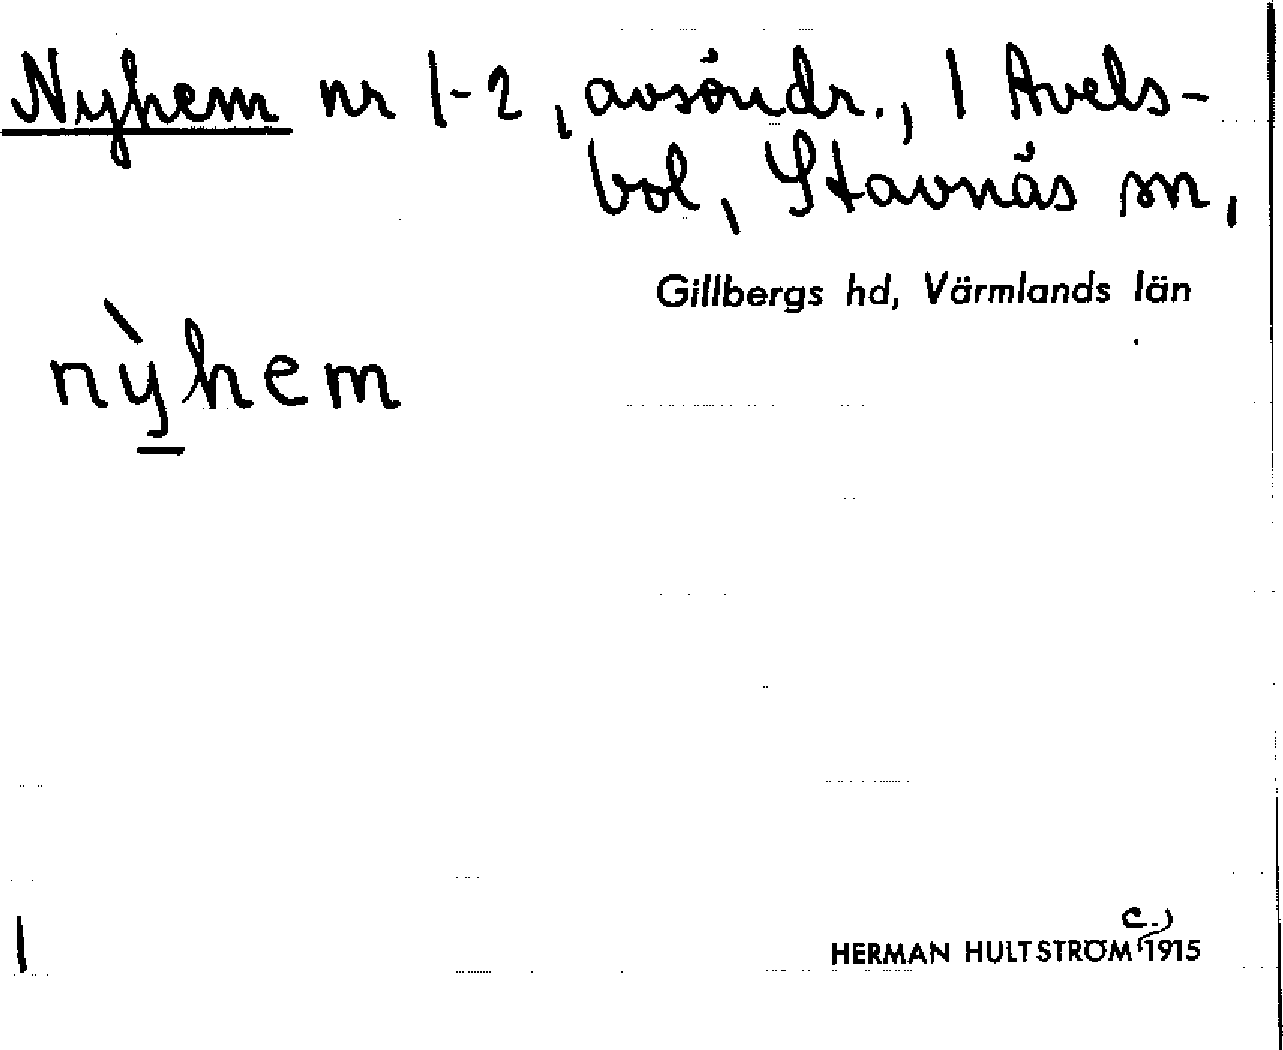 Nyhem nr 1-2, avsöndr., 1 Avels-
bol, Stavnäs sn,
Gillbergs hd, Värmlands län
nỳhem
1
c.)
HERMAN HULTSTRÖM 1915